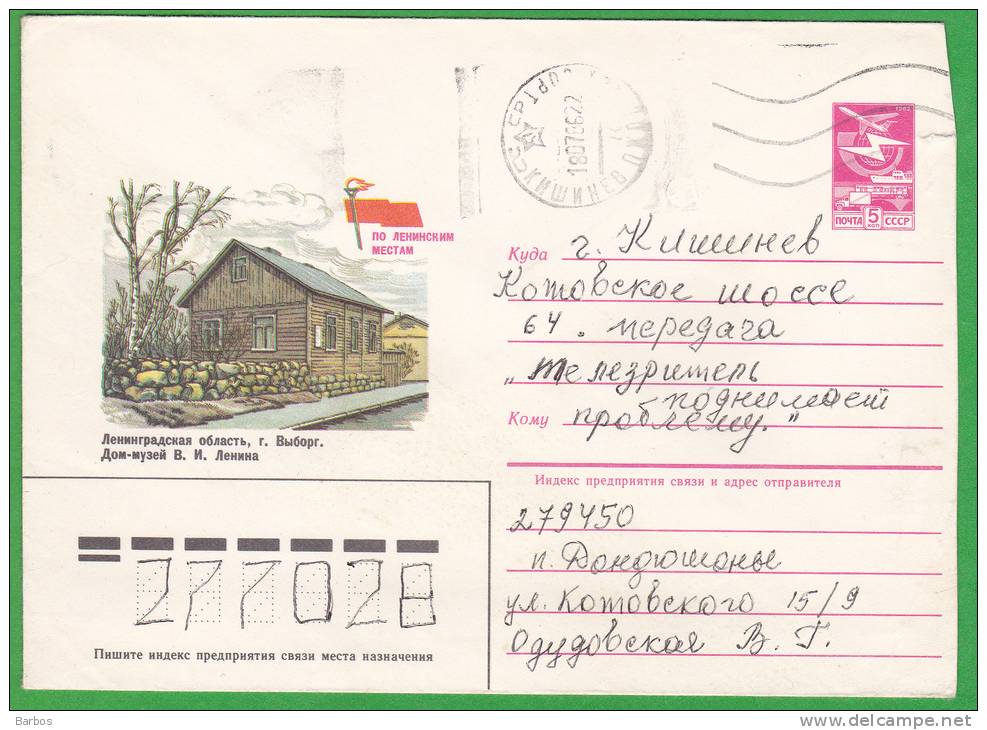 КИШИНЕВ
18078622
1982
ПОЧТА 5 КОП СССР
ПО ЛЕНИНСКИМ
МЕСТАМ
Ленинградская область, г. Выборг.
Дом-музей В. И. Ленина
Куда г. Кишинев
Котовское шоссе
64. передача
„телезритель
поднимает
Кому проблему."
Индекс предприятия связи и адрес отправителя
279450
п. Дондюшаны
ул. Котовского 15/9
Одудовская В. Г.
277028
Пишите индекс предприятия связи места назначения
Barbos
www.delcampe.net